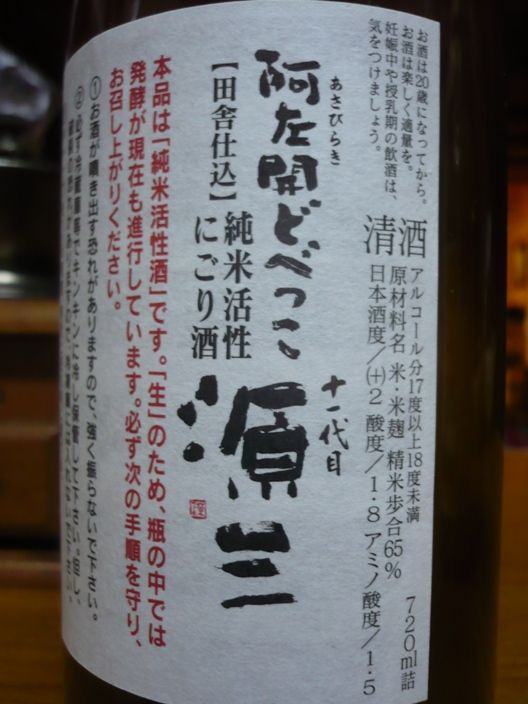 お酒は20歳になってから。
お酒は楽しく適量を。
妊娠中や授乳期の飲酒は、
気をつけましょう。
清酒
アルコール分17度以上18度未満
原材料名 米・米麹 精米歩合65% 720ml詰
日本酒度/(+)2 酸度/1.8 アミノ酸度/1.5
あさびらき
阿左開どべっこ
十一代目
源三
【田舎仕込】
純米活性
にごり酒
本品は「純米活性酒」です。「生」のため、瓶の中では
発酵が現在も進行しています。必ず次の手順を守り、
お召し上がりください。
①お酒が噴き出す恐れがありますので、強く振らないで下さい。
②必ず冷蔵庫等でキンキンに冷し保管して下さい。但し、
恐れがありますので、冷凍庫には入れないで下さい。